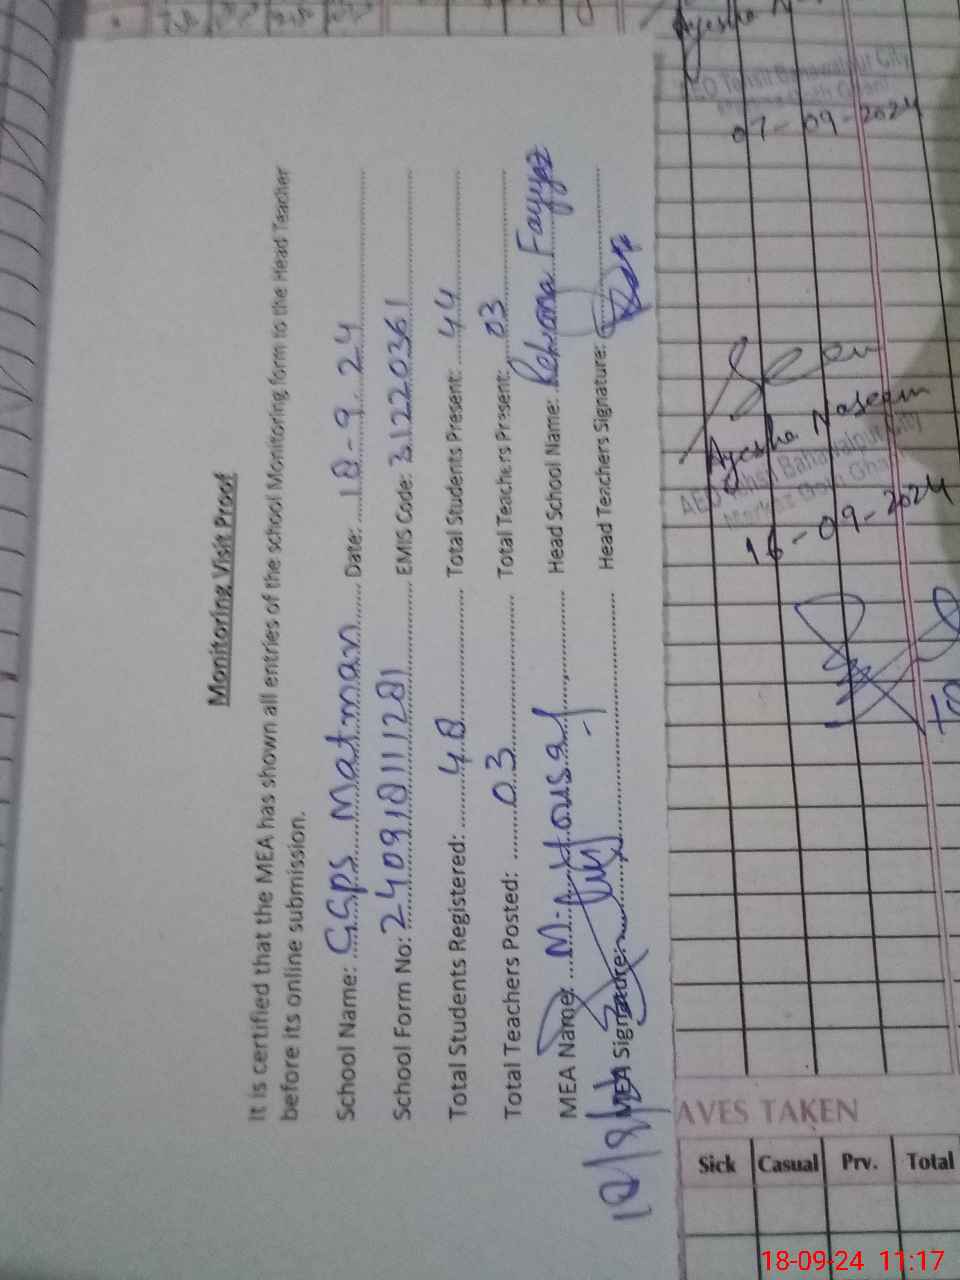 Monitoring Visit Proof
It is certified that the MEA has shown all entries of the school Monitoring form to the Head Teacher
before its online submission.
School Name: GGPS Matman Date: 18-9-24
School Form No: 240918111281 EMIS Code: 31220361
Total Students Registered: 48 Total Students Present: 44
Total Teachers Posted: 03 Total Teachers Present: 03
MEA Name: M. Head School Name: Rehana Fayyaz
MEA Signature: Head Teachers Signature:
Ayesha
AEO Tehsil Bahawalpur City
07-09-2024
Ayesha Naseem
AEO Tehsil Bahawalpur City
Markaz
16-09-2024
AVES TAKEN
Sick Casual Prv. Total
18-09-24 11:17